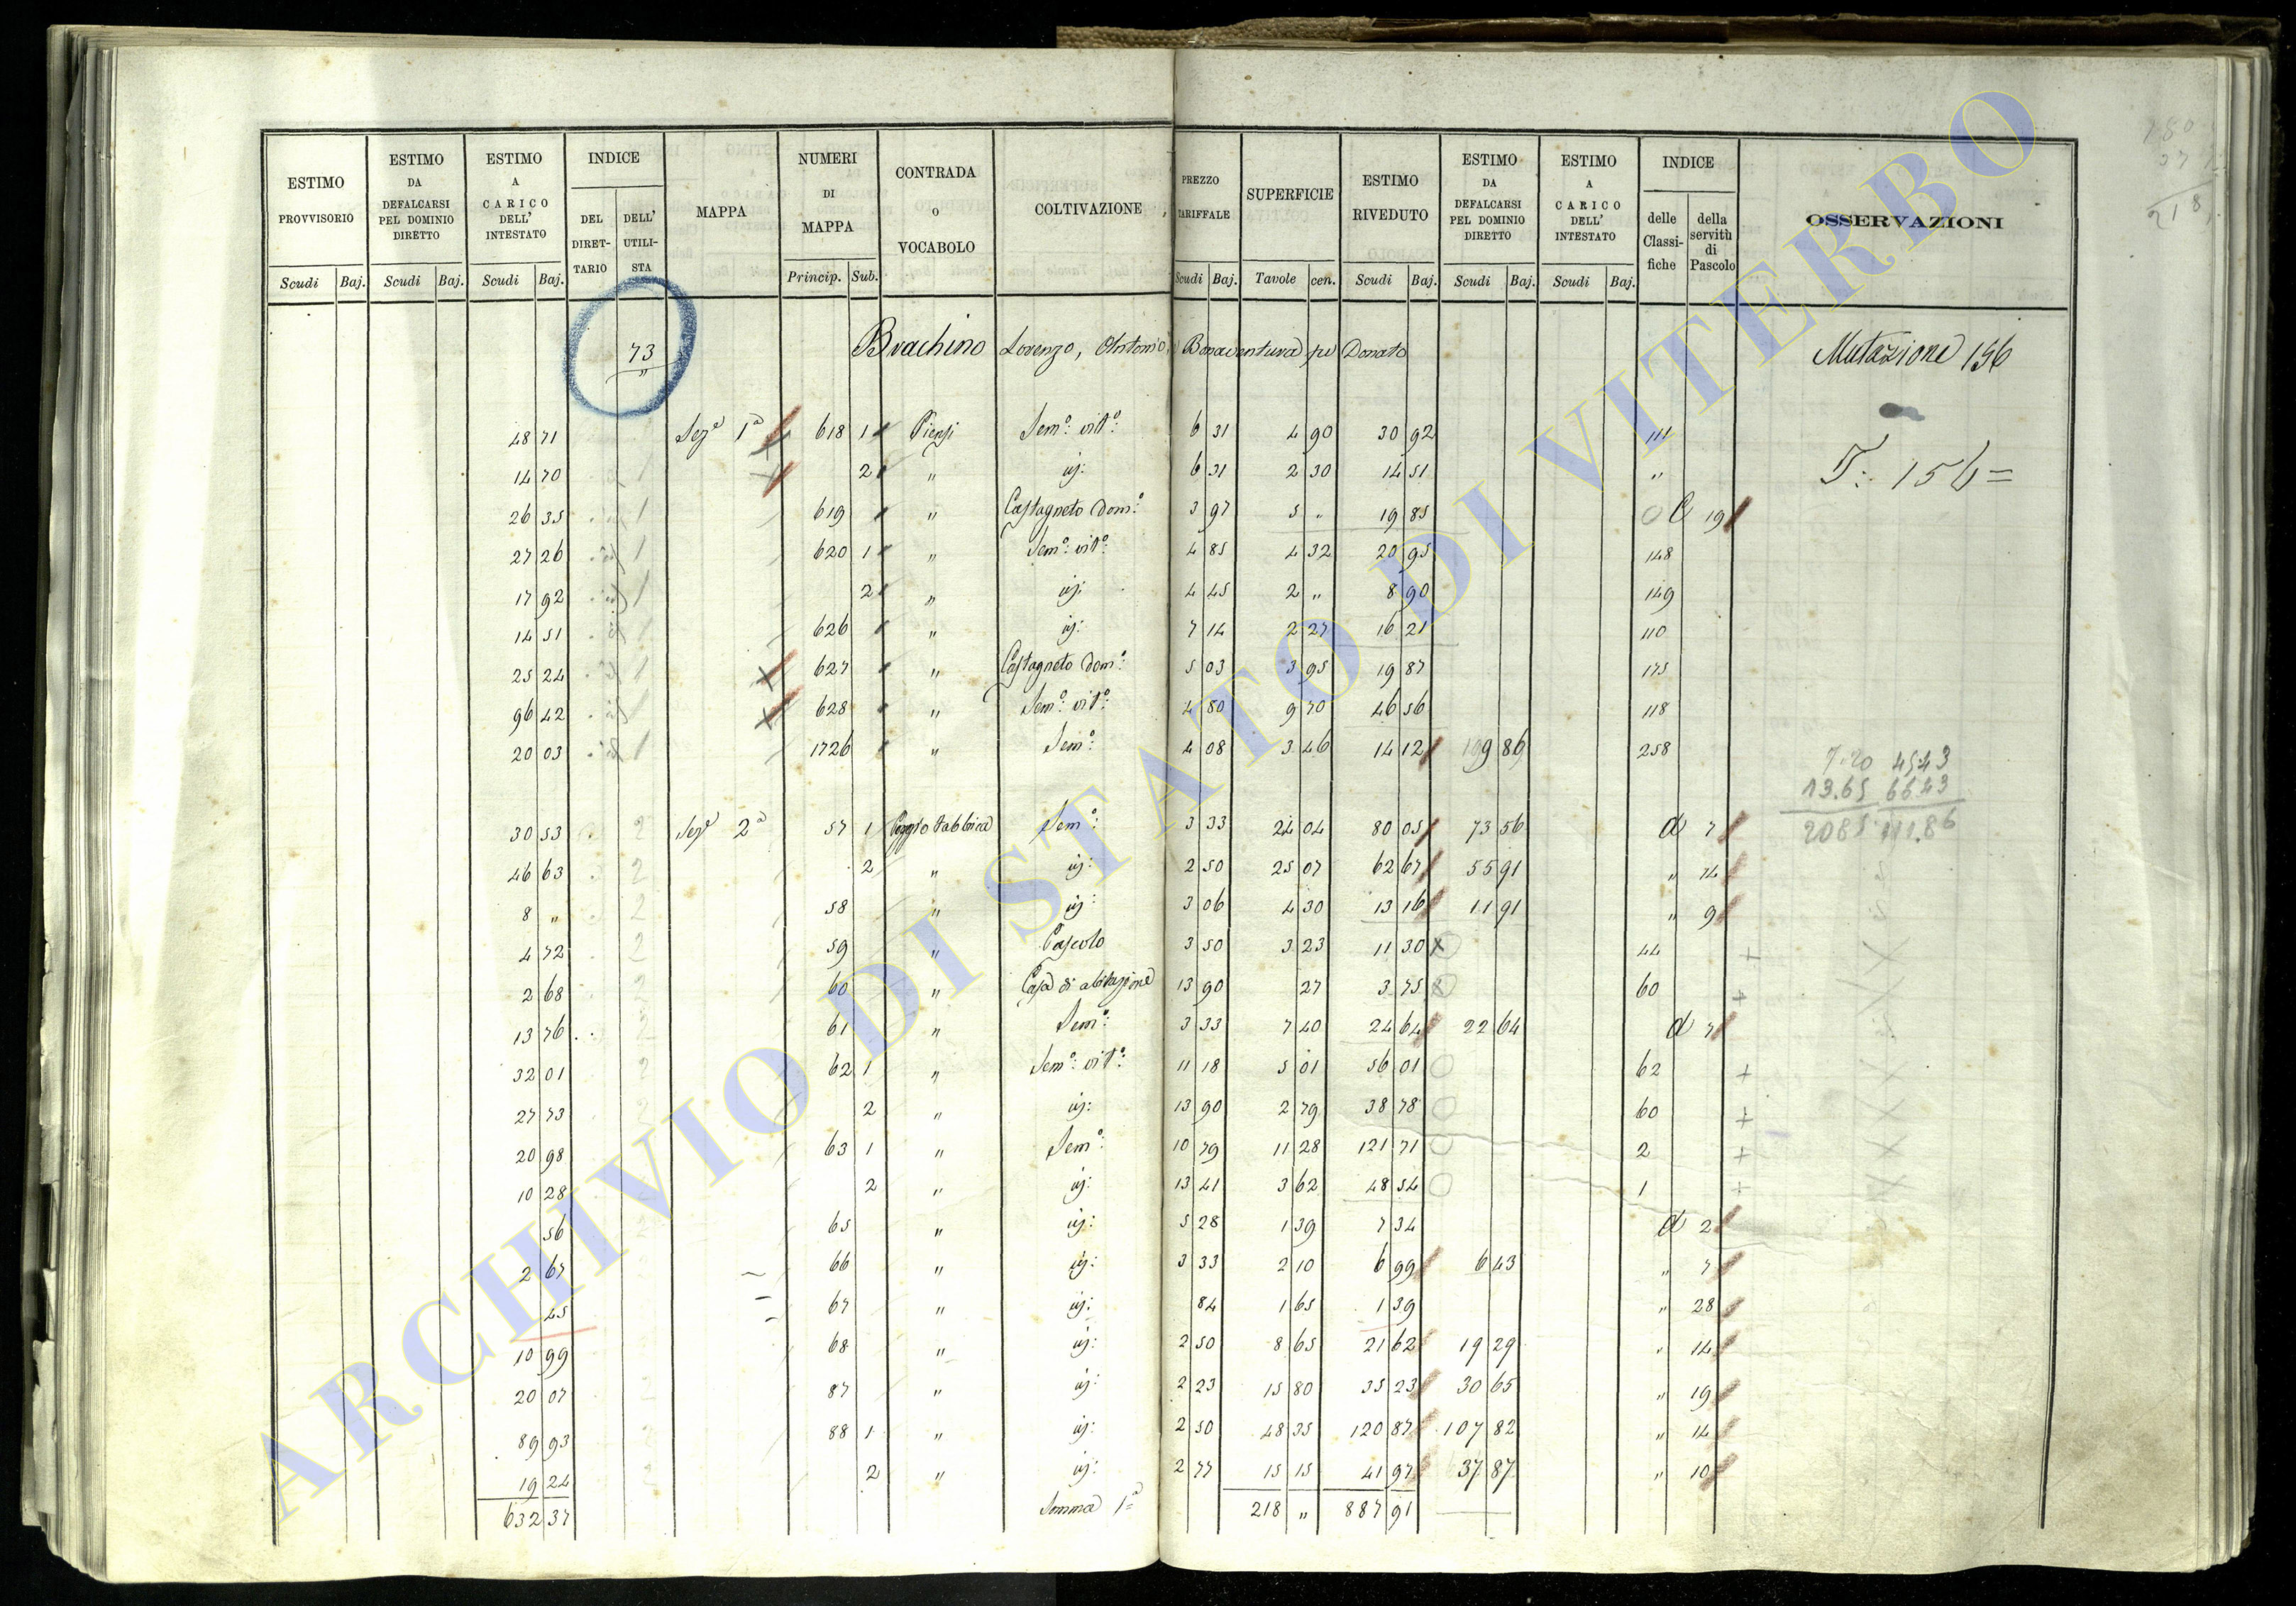 ESTIMO PROVVISORIO | ESTIMO DA DEFALCARSI PEL DOMINIO DIRETTO | ESTIMO A CARICO DELL' INTESTATO | INDICE DEL DIRETTARIO | DELL' UTILISTA | MAPPA | NUMERI DI MAPPA | CONTRADA O VOCABOLO | COLTIVAZIONE | PREZZO TARIFFALE | SUPERFICIE | ESTIMO RIVEDUTO | ESTIMO DA DEFALCARSI PEL DOMINIO DIRETTO | ESTIMO A CARICO DELL' INTESTATO | INDICE delle Classifiche | della servitù di Pascolo | OSSERVAZIONI
Scudi Baj. Scudi Baj. Scudi Baj. Princip. Sub. Scudi Baj. Tavole cen. Scudi Baj. Scudi Baj. Scudi Baj.
73 Brachino Lorenzo, Antonio, Bonaventura Donato Mutazione 156
48 71 Seze 1a 618 1 Piensi Semo: vito: 6 31 4 90 30 92 111
14 70 2 " id: 6 31 2 30 14 51 " T: 156=
26 35 619 " Castagneto dom: 3 97 5 " 19 85 C 19
27 26 620 1 " Semo: vito: 4 85 4 32 20 95 148
17 92 2 " id: 4 45 2 " 8 90 149
14 51 626 " id: 7 14 2 27 16 21 110
25 24 627 " Castagneto dom: 5 03 3 95 19 87 175
96 42 628 " Semo: vito: 4 80 9 70 46 56 118
20 03 1726 " Semo: 4 08 3 46 14 12 199 86 258
7.20 45.43
13.65 66.43
2085 111.86
30 53 Seze 2a 57 1 Semo: 3 33 24 04 80 05 73 56 d 7
46 63 2 " id: 2 50 25 07 62 67 55 91 " 14
8 " 58 " id: 3 06 4 30 13 16 11 91 " 9
4 72 59 " Pascolo 3 50 3 23 11 30 44
2 68 60 " Casa di abitazione 13 90 27 3 75 60
13 76 61 " Semo: 3 33 7 40 24 64 22 64 d 7
32 01 62 1 " Semo: vito: 11 18 5 01 56 01 62
27 73 2 " id: 13 90 2 79 38 78 60
20 98 63 1 " Semo: 10 79 11 28 121 71 2
10 28 2 " id: 13 41 3 62 48 54 1
56 65 " id: 5 28 1 39 7 34 d 2
2 67 66 " id: 3 33 2 10 6 99 6 43 " 7
45 67 " id: 84 1 65 1 39 " 28
10 99 68 " id: 2 50 8 65 21 62 19 29 " 14
20 07 87 " id: 2 23 15 80 35 23 30 65 " 19
89 93 88 1 " id: 2 50 48 35 120 87 107 82 " 14
19 24 2 " id: 2 77 15 15 41 97 37 87 " 10
632 37 Somma 1a 218 " 887 91
218
ARCHIVIO DI STATO DI VITERBO